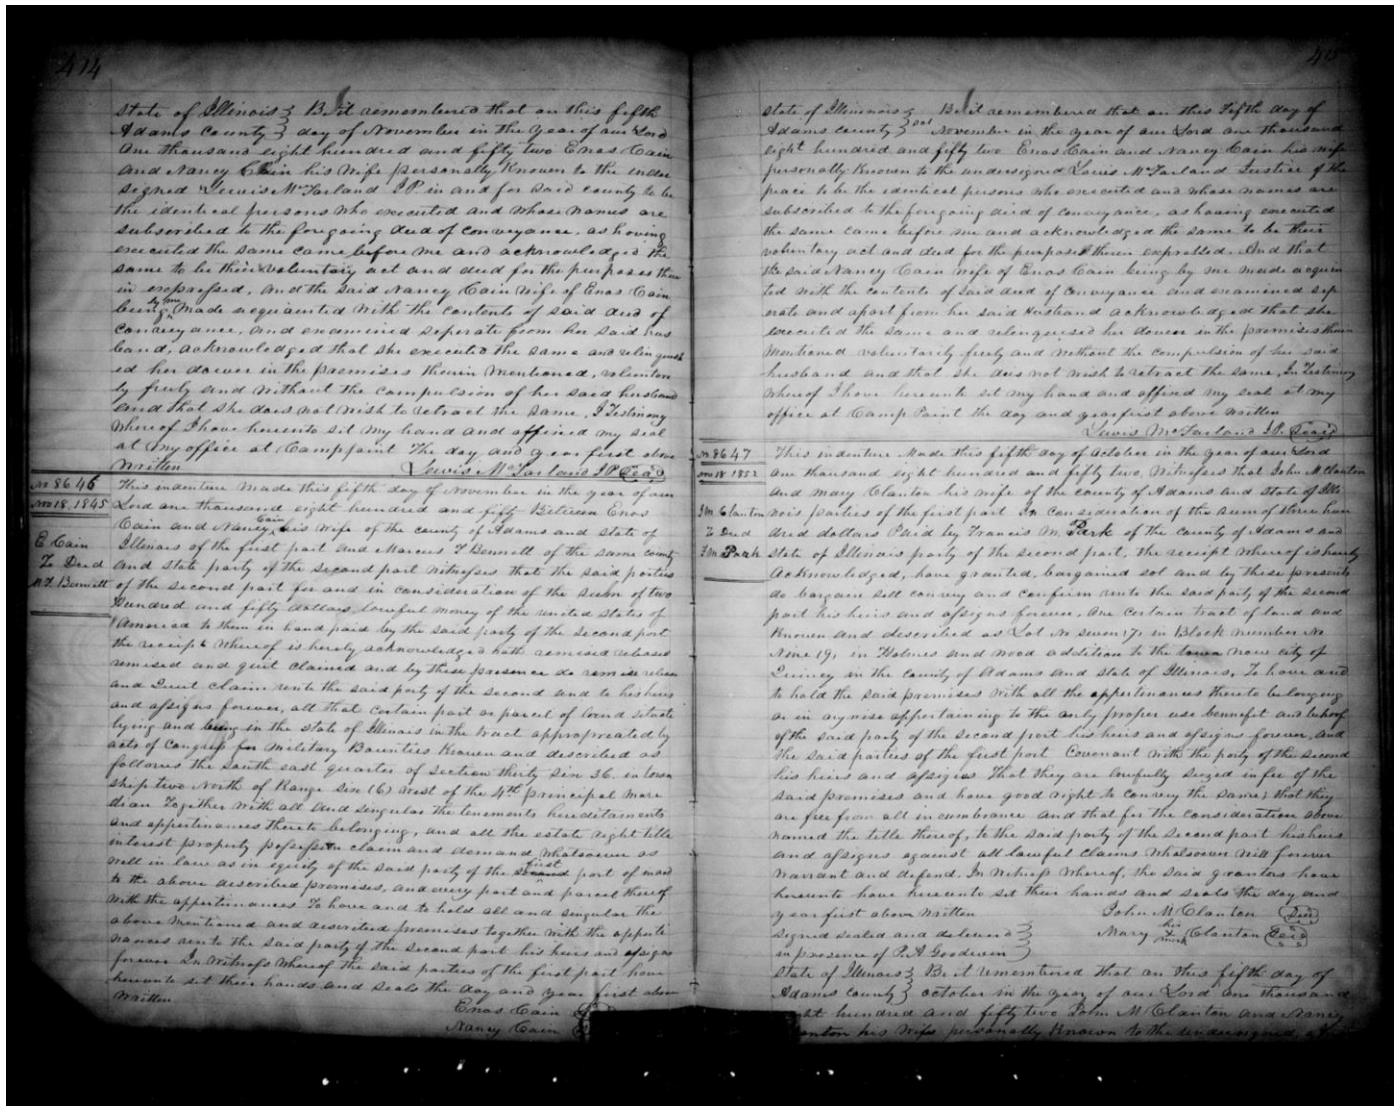 414
State of Illinois } Be it remembered that on this fifth
Adams County } day of November in the year of our Lord
One thousand eight hundred and fifty two Enos Cain
and Nancy Cain his Wife personally Known to the under
signed Lewis McFarland J P in and for said county to be
the identical persons who executed and whose names are
subscribed to the foregoing deed of conveyance, as having
executed the same came before me and acknowledged the
same to be their voluntary act and deed for the purposes there
in expressed, and the said Nancy Cain Wife of Enos Cain
being by me made acquainted with the contents of said deed of
conveyance, and examined seperate from her said hus
band, acknowledged that she executed the same and relinquish
ed her dower in the premises therein mentioned, voluntar
ly freely and without the compulsion of her said husband
and that she does not wish to retract the same, I Testimony
whereof I have hereunto set my hand and affixed my seal
at my office at Camppoint The day and year first above
Written Lewis McFarland J P Seal
No 8646
Nov 18, 1845
E Cain
To Deed
M. T. Bennett
This indenture made this fifth day of November in the year of our
Lord one thousand eight hundred and fifty Between Enos
Cain and Nancy Cain his wife of the county of Adams and state of
Illinois of the first part and Marcus T Bennett of the same county
and state party of the second part witnesses that the said parties
of the second part for and in consideration of the sum of two
Hundred and fifty dollars, lawful money of the united states of
America to them in hand paid by the said party of the second part
the receipt whereof is hereby acknowledged hath remised released
remised and quit claimed and by these presence do remise release
and Quit claim unto the said party of the second and to his heirs
and assigns forever, all that certain part or parcel of land situate
lying and being in the state of Illinois in the tract appropriated by
acts of Congress for military Bounties Known and described as
follows the south east quarter of section thirty six 36. in town
ship two North of Range six (6) west of the 4th principal mere
dian Together with all and singular the tenements hereditaments
and appertinances thereto belonging, and all the estate right title
interest property possession claim and demand whatsoever as
well in law as in equity of the said party of the second first part of in and
to the above described premises, and every part and parcel thereof
with the appertinances To have and to hold all and singular the
above mentioned and described premises together with the apperte
nances unto the said party of the second part his heirs and assigns
forever In Witness whereof the said parties of the first part have
hereunto set their hands and seals the day and year first above
Written
Enos Cain
Nancy Cain
415
State of Illinois } Be it remembered that on this Fifth day of
Adams county } November in the year of our Lord one thousand
eight hundred and fifty two Enos Cain and Nancy Cain his wife
personally Known to the undersigned Lewis McFarland Justice of the
peace to be the identical persons who executed and whose names are
subscribed to the foregoing deed of conveyance, as having executed
the same came before me and acknowledged the same to be their
voluntary act and deed for the purposes therein expressed. And that
the said Nancy Cain wife of Enos Cain being by me made acquain
ted with the contents of said deed of conveyance and examined sep
erate and apart from her said Husband acknowledged that she
executed the same and relenquised her dower in the premises therein
mentioned voluntarily freely and without the compulsion of her said
husband and that she does not wish to retract the same, In Testimony
whereof I have hereunto set my hand and affixed my seal at my
office at Camp Point the day and year first above written
Lewis McFarland J P. Seal
No 8647
Nov 18 1852
J M Clanton
To Deed
F M Park
This indenture Made this fifth day of October in the year of our Lord
one thousand eight hundred and fifty two, Witnesses that John M Clanton
and Mary Clanton his wife of the county of Adams and state of Illi
nois parties of the first part In consideration of the sum of three hun
dred dollars Paid by Francis M. Park of the county of Adams and
state of Illinois party of the second part, the receipt whereof is hereby
acknowledged, have granted, bargained sol and by these presents
do bargain sell convey and confirm unto the said party of the second
part his heirs and assigns forever, One certain tract of land and
Known and described as Lot No seven 7, in Block number No
Nine 9, in Holmes and wood addition to the town now city of
Quincy in the county of Adams and state of Illinois, To have and
to hold the said premises with all the appertinances thereto belonging
or in anywise appertaining to the only proper use bennefit and behoof
of the said party of the second part his heirs and assigns forever, And
the said parties of the first part Covenant with the party of the second
his heirs and assigns That they are lawfully seized in fee of the
said premises and have good right to convey the same; that they
are free from all incumbrance and that for the consideration above
named the title thereof, to the said party of the second part his heirs
and assigns against all lawful claims whatsoever will forever
warrant and defend. In witness whereof, the said grantors have
hereunto have hereunto set their hands and seals the day and
year first above written John M Clanton Seal
signed sealed and delivered } Mary his x mark Clanton Seal
in presence of P. A Goodwin }
State of Illinois } Be it remembered that on this fifth day of
Adams county } october in the year of our Lord one thousand
hundred and fifty two John M Clanton and Nancy
his wife personally Known to the undersigned, a